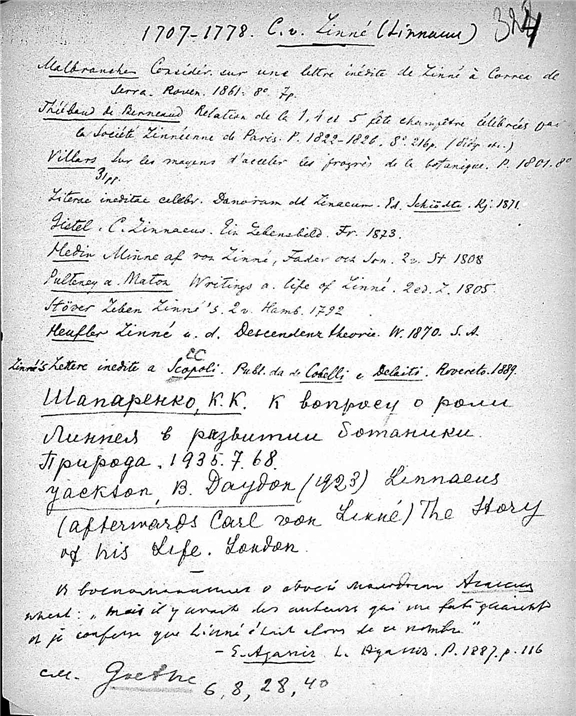 1707-1778. C. v. Linné (Linnaeus)
Malbranche Considér. sur une lettre inédite de Linné à Correa de
Serra. Rouen. 1861. 8º. 7p.
Thiébaud de Berneaud Relation de la 1, 4 et 5 fête champêtre célébrées par
la Société Linnéenne de Paris. P. 1822-1826. 8º. 216p.
Villars Sur les moyens d'acceler les progrès de la botanique. P. 1801. 8º
31pp.
Literae ineditae celebr. Danorum ad Linaeum. Ed. Schiödte. Kj. 1871
Gistel. C. Linnaeus. Ein Lebensbild. Fr. 1873.
Hedin Minne af von Linné, Fader och Son. 2 v. St 1808
Pulteney a. Maton Writings a. life of Linné. 2 ed. L. 1805
Stöver Leben Linné's. 2 v. Hamb. 1792
Heufler Linné u. d. Descendenztheorie. W. 1870. S. A.
Linné's Lettere inedite a EC Scopoli. Publ. da de Cobelli e Delaiti. Rovereto. 1889.
Шапаренко, К.К. К вопросу о роли
Линнея в развитии ботаники.
Природа. 1935. 7. 68.
Jackson, B. Daydon (1923) Linnaeus
(afterwards Carl von Linné) The Story
of his Life. London.
В воспоминаниях о своей молодости Агассиз
пишет: „mais il y avait des auteurs qui me fatiguaient
et je confesse que Linné était alors de ce nombre"
- E. Agassiz L. Agassiz. P. 1887. p. 116
см. Goethe 6, 8, 28, 40